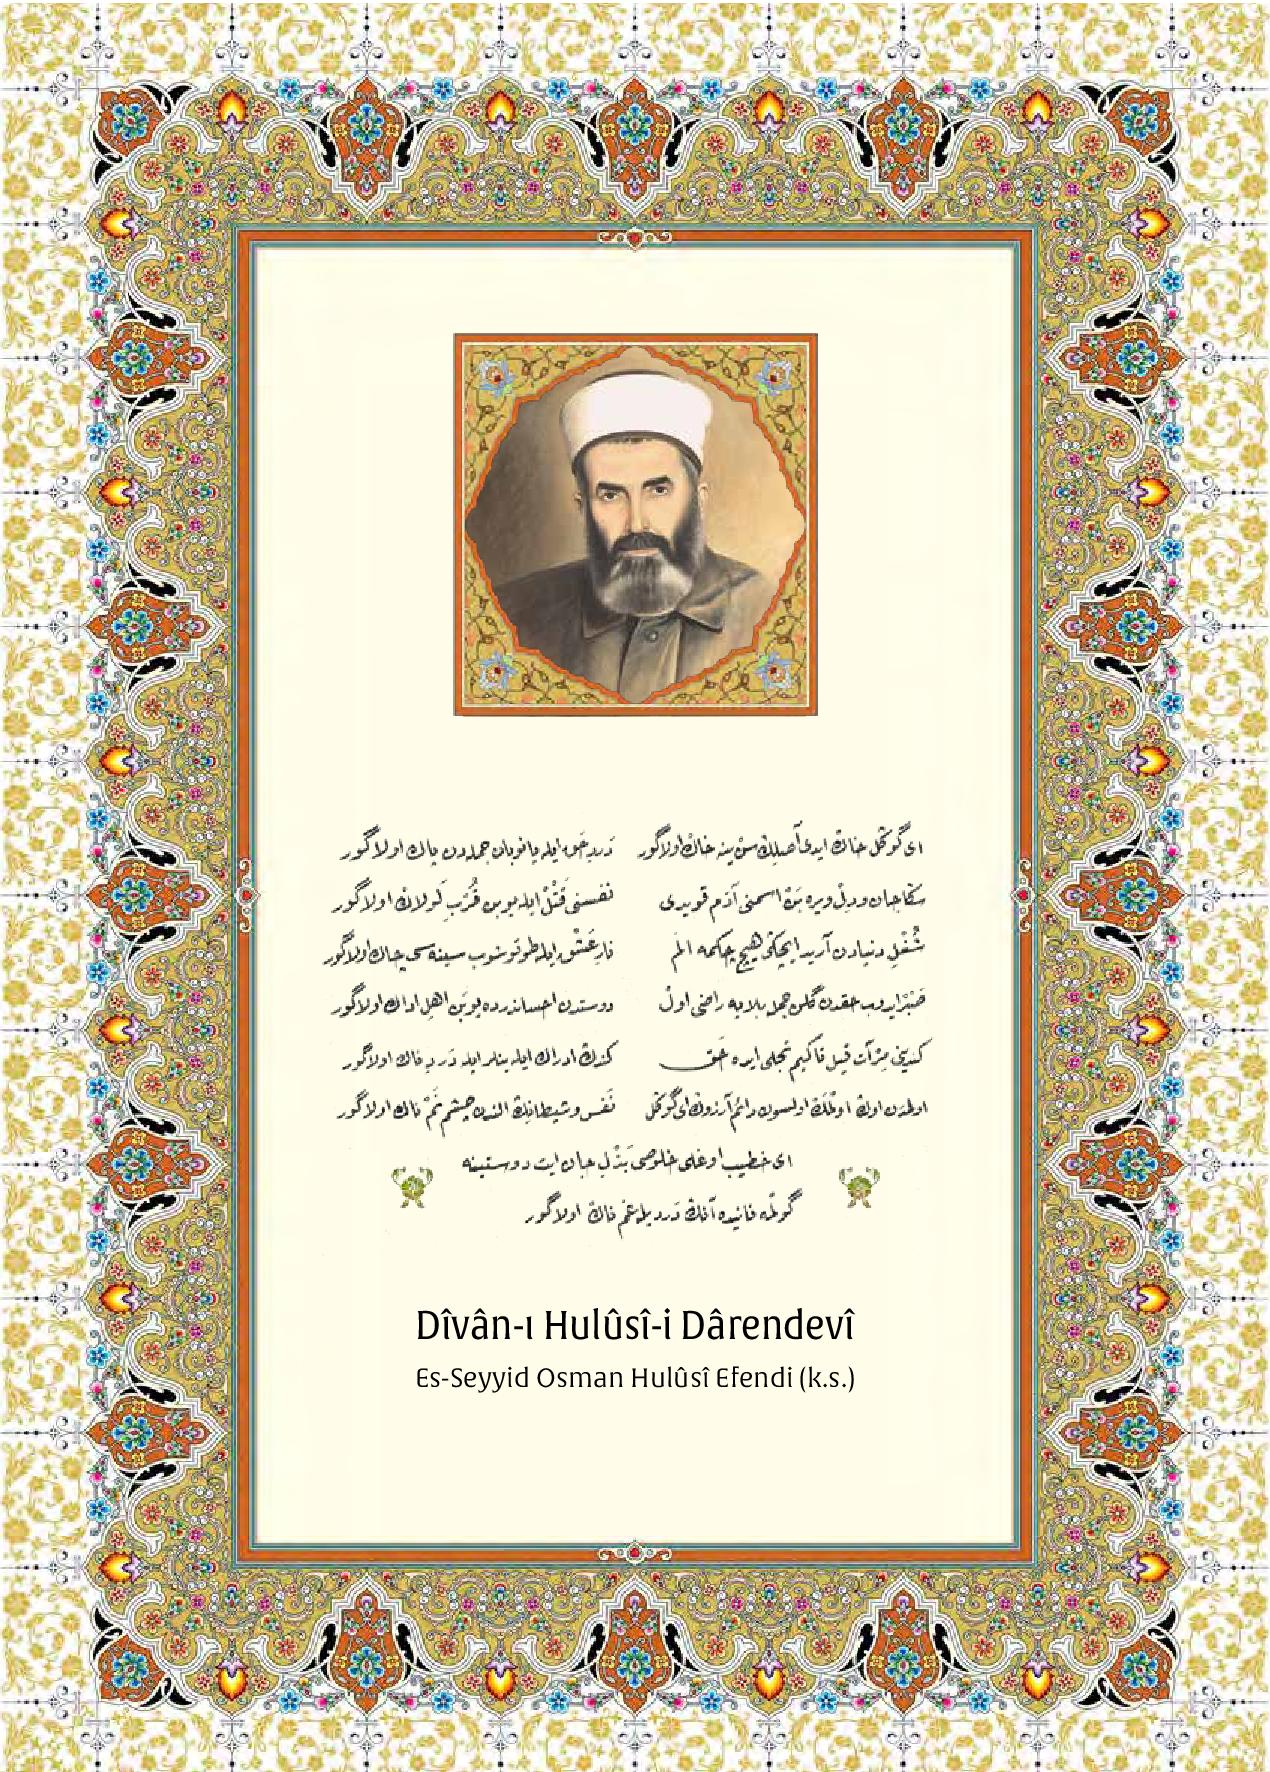 ای گوکل خاك ایدی آصلڭ سن ینه خاك اولاگور دَردِ حَق ایله یانوبان جمله‌دن پاك اولاگور
سكا جان و دل ویره بَن اسمنی آدَم قویدی نفسنی قَتْل ایله یوبن قُرْبِ لَولاك اولاگور
شُغْلِ دنیادن آرید ایچكی هیچ چكمه الَم نارِ عَشْق ایله طوتوشوب سینه سی چاك اولاگور
صَبْر ایدوب حقدن گلن جمله بلایه راضی اول دوستدن احساندر ده یوبن اهلِ ادراك اولاگور
كندینی مِرْآت قیل تا كیم تجلی ایده حَق كندڭ ادراك ایله ایله دَردِ ناك اولاگور
اولمدن اول اولمك اولسون دائم آرزوڭ ای گوكل نَفس و شیطانڭ الندن چشمِ نَمْ ناك اولاگور
ای خطیب اوغلی خلوصی بَذْلِ جان ایت دوستینه
گولمه فانیده آنڭ دَردیله غم ناك اولاگور
Dîvân-ı Hulûsî-i Dârendevî
Es-Seyyid Osman Hulûsî Efendi (k.s.)